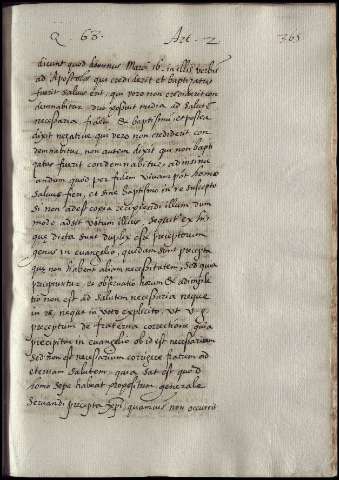 Q. 68. Art. 2 365
dicunt quod dominus Marci 16. in illis verbis
ad Apostolos qui crediderit et baptizatus
fuerit salvus erit, qui vero non crediderit con
demnabitur. duo posuit media ad salutem
necessaria fidem & baptismum et postea
dixit negative qui vero non crediderit con
demnabitur, non autem dixit qui non bapti
zatus fuerit condemnabitur, ad insinu
andum quod per fidem vivam potest homo
salvus fieri, et sine baptismo in re suscepto
si non adest copia recipiendi illum dum
modo adsit votum illius. sequitur ex his
quæ dicta sunt duplex esse preceptorum
genus in evangelio, quedam sunt precepta
quæ non habent aliam necessitatem, sed quia
precipiuntur, et observatio horum & adimple
tio non est ad salutem necessaria neque
in re, neque in voto explicito, ut v. g.
preceptum de fraterna correctione quia
precipitur in evangelio ob id est necessarium
sed non est necessarium corrigere fratrem ad
eternam salutem, quia sat est quod
homo sepe habeat propositum generale
servandi precepta Xpi, quamvis non occurrit